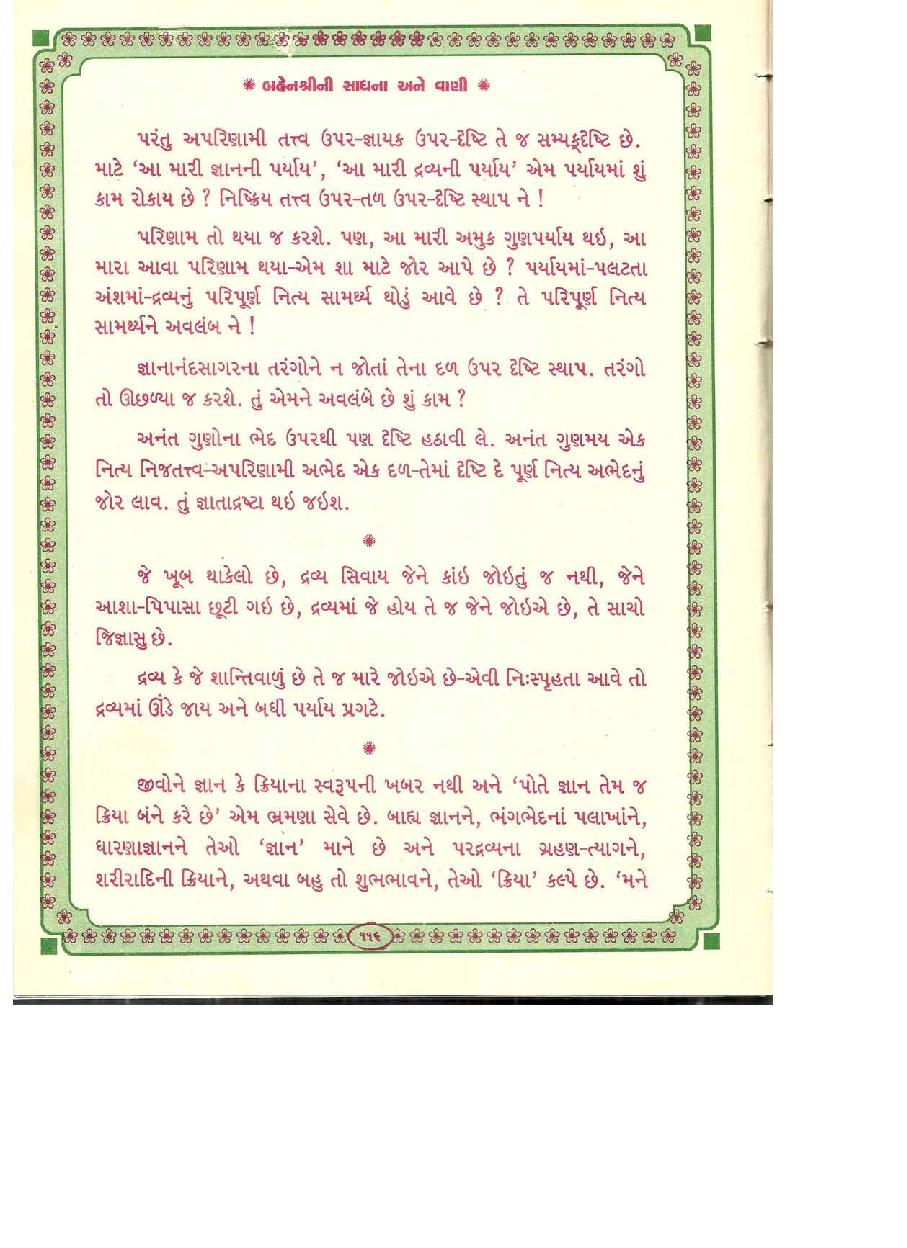 ❋ બહેનશ્રીની સાધના અને વાણી ❋
પરંતુ અપરિણામી તત્ત્વ ઉપર-જ્ઞાયક ઉપર-દૃષ્ટિ તે જ સમ્યક્દૃષ્ટિ છે.
માટે ‘આ મારી જ્ઞાનની પર્યાય’, ‘આ મારી દ્રવ્યની પર્યાય’ એમ પર્યાયમાં શું
કામ રોકાય છે ? નિષ્ક્રિય તત્ત્વ ઉપર-તળ ઉપર-દૃષ્ટિ સ્થાપ ને !
પરિણામ તો થયા જ કરશે. પણ, આ મારી અમુક ગુણપર્યાય થઇ, આ
મારા આવા પરિણામ થયા-એમ શા માટે જોર આપે છે ? પર્યાયમાં-પલટતા
અંશમાં-દ્રવ્યનું પરિપૂર્ણ નિત્ય સામર્થ્ય થોડું આવે છે ? તે પરિપૂર્ણ નિત્ય
સામર્થ્યને અવલંબ ને !
જ્ઞાનાનંદસાગરના તરંગોને ન જોતાં તેના દળ ઉપર દૃષ્ટિ સ્થાપ. તરંગો
તો ઊછળ્યા જ કરશે. તું એમને અવલંબે છે શું કામ ?
અનંત ગુણોના ભેદ ઉપરથી પણ દૃષ્ટિ હઠાવી લે. અનંત ગુણમય એક
નિત્ય નિજતત્ત્વ-અપરિણામી અભેદ એક દળ-તેમાં દૃષ્ટિ દે પૂર્ણ નિત્ય અભેદનું
જોર લાવ. તું જ્ઞાતાદ્રષ્ટા થઇ જઇશ.
❋
જે ખૂબ થાકેલો છે, દ્રવ્ય સિવાય જેને કાંઇ જોઇતું જ નથી, જેને
આશા-પિપાસા છૂટી ગઇ છે, દ્રવ્યમાં જે હોય તે જ જેને જોઇએ છે, તે સાચો
જિજ્ઞાસુ છે.
દ્રવ્ય કે જે શાન્તિવાળું છે તે જ મારે જોઇએ છે-એવી નિઃસ્પૃહતા આવે તો
દ્રવ્યમાં ઊંડે જાય અને બધી પર્યાય પ્રગટે.
❋
જીવોને જ્ઞાન કે ક્રિયાના સ્વરૂપની ખબર નથી અને ‘પોતે જ્ઞાન તેમ જ
ક્રિયા બંને કરે છે’ એમ ભ્રમણા સેવે છે. બાહ્ય જ્ઞાનને, ભંગભેદનાં પલાખાંને,
ધારણાજ્ઞાનને તેઓ ‘જ્ઞાન’ માને છે અને પરદ્રવ્યના ગ્રહણ-ત્યાગને,
શરીરાદિની ક્રિયાને, અથવા બહુ તો શુભભાવને, તેઓ ‘ક્રિયા’ કલ્પે છે. ‘મને
૧૧૬